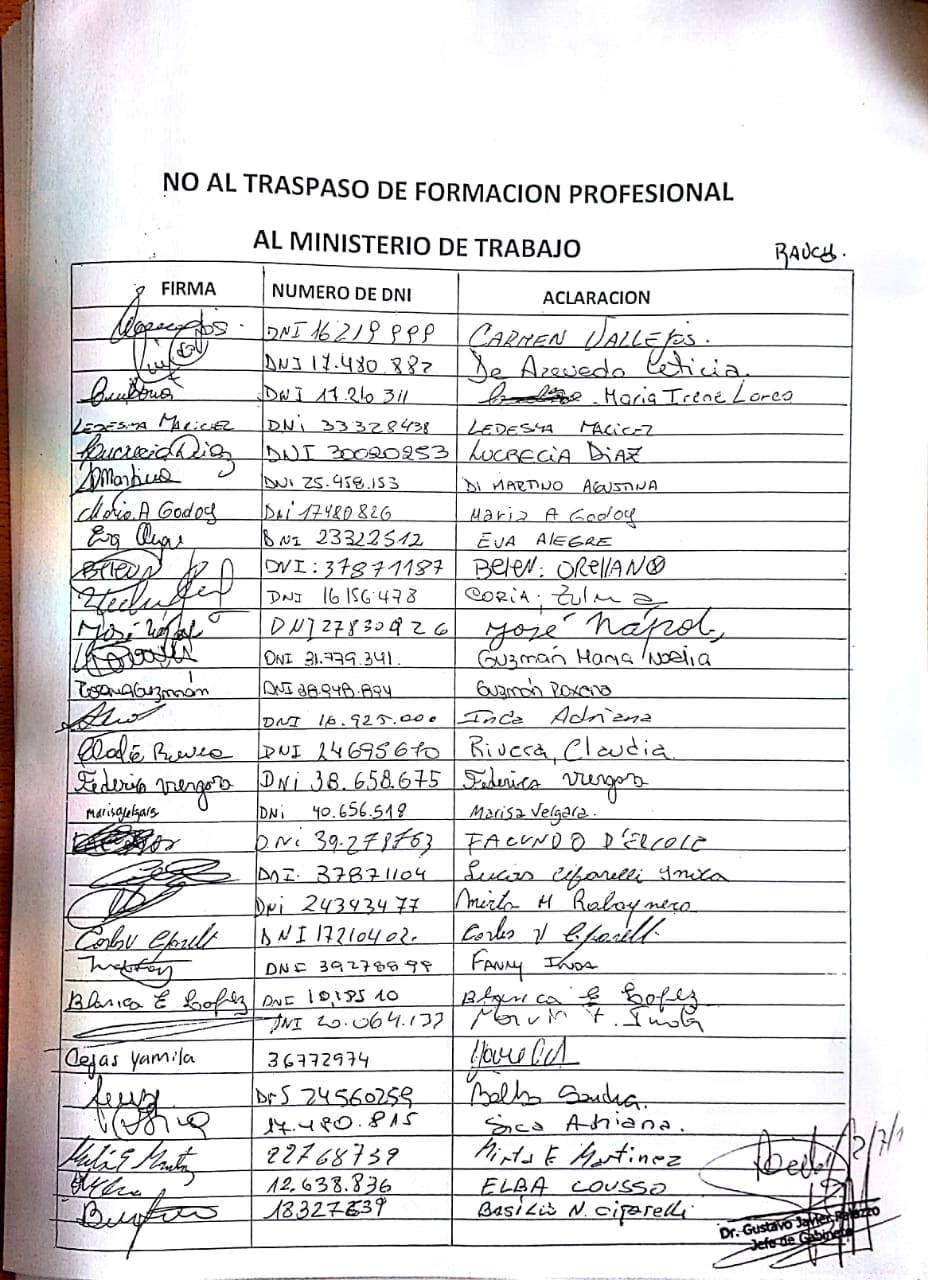 NO AL TRASPASO DE FORMACION PROFESIONAL
AL MINISTERIO DE TRABAJO
RAUCH.
FIRMA NUMERO DE DNI ACLARACION
DNI 16219999 CARMEN VALLEJOS.
DNI 17.480.882 De Azevedo Leticia.
DNI 17.210 311 Maria Irene Lores
LEDESMA MARICEZ DNi 33328438 LEDESMA MARICEZ
Lucrecia Diaz DNI 30020253 LUCRECIA DIAZ
DNI 25.458.153 DI MARTINO AGUSTINA
Maria.A Godoy DNi 17480826 Maria A Godoy
Eva Alegre DNI 23322512 EVA ALEGRE
BELEN DNI: 37871187 BELEN: ORELLANO
DNI 16156478 CORIA; Zulma
José DNI 27830926 José Nápoli
DNI 31.779.341. Guzmán Maria Noelia
Guzmán DNI 38.948.894 Guzmán Roxana
DNI 16.925.000 Inda Adriana
DNI 24695670 Rivera, Claudia.
Federico Vergara DNi 38.658.675 Federico Vergara
Marisa Velgara DNi 40.656.519 Marisa Velgara.
DNi 39.278763 FACUNDO D'ERCOLE
DNI. 37871104 Lucas Ciparelli
DNi 24343477 Mirta M
Carlos Ciparelli DNI 17210402. Carlos V Ciparelli
DNI 39278899 FANNY INDA
Blanca E Lopez DNI 10,185 10 Blanca E Lopez
DNI 20.064.133
Cejas Yamila 36772974
24560259 Sandra.
17.480.815 Sica Adriana.
22768739 Mirta E Martinez
12.638.836 ELBA COUSSO
18327639 BASILIO N. Ciparelli
Dr. Gustavo Javier Palazzo
Jefe de Gabinete